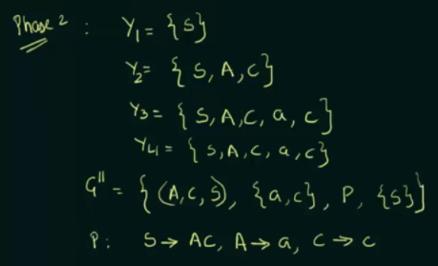 Phase 2 : Y₁ = {S}
Y₂ = {S, A, C}
Y₃ = {S, A, C, a, c}
Y₄ = {S, A, C, a, c}
G" = {(A, C, S), {a, c}, P, {S}}
P: S → AC, A → a, C → c